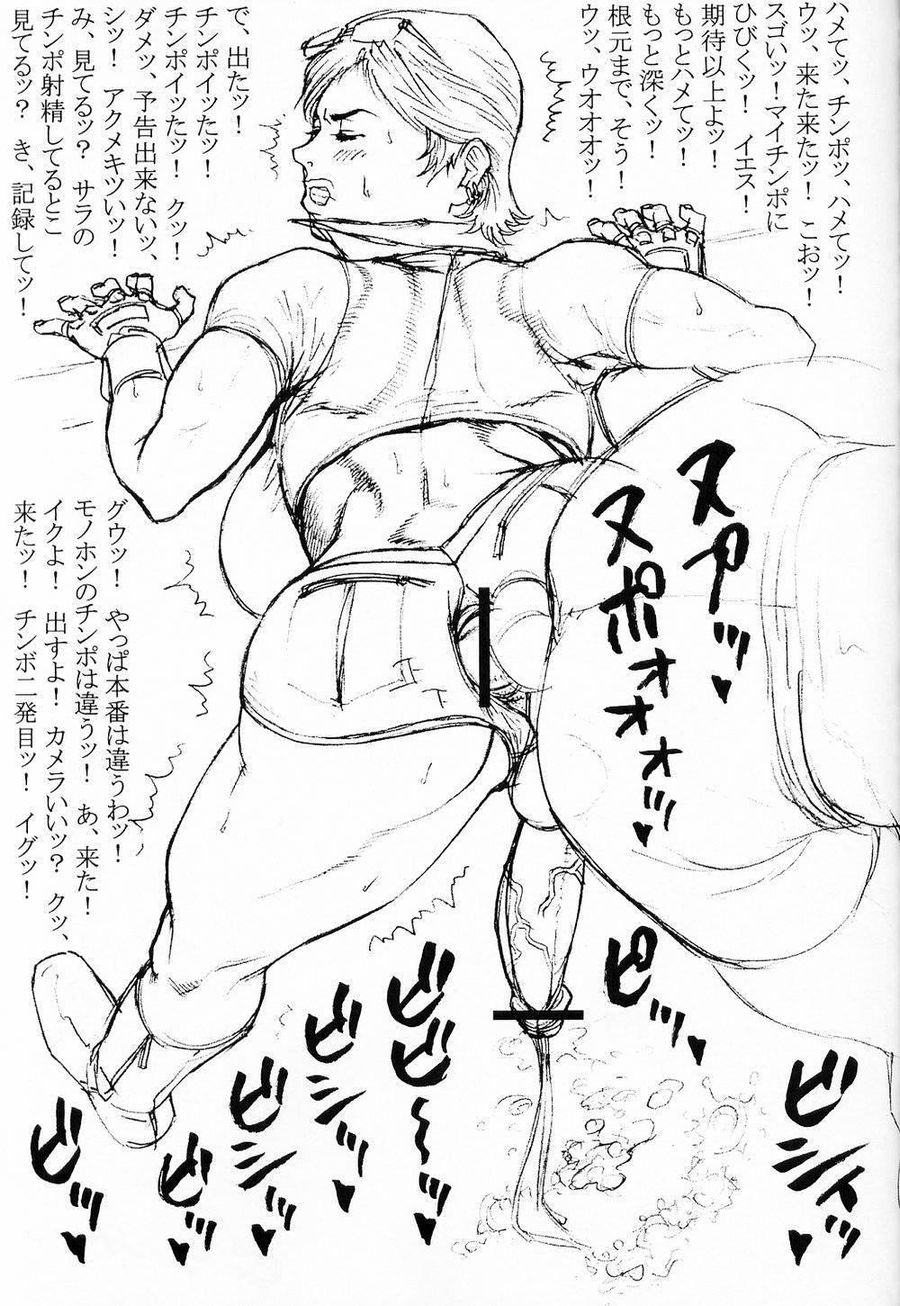 ハメてッ、チンポッ、ハメてッ!
ウッ、来た来たッ! こおッ!
スゴいッ!マイチンポに
ひびくッ! イエス!
期待以上よッ!
もっとハメてッ!
もっと深くッ!
根元まで、そう!
ウッ、ウオオオッ!
で、出たッ!
チンポイッたッ!
チンポイッたッ! クッ!
ダメッ、予告出来ないッ、
シッ! アクメキツいッ!
み、見てるッ? サラの
チンポ射精してるとこ
見てるッ? き、記録してッ!
ヌアッ♥
ヌポォオオッ♥
グウッ! やっぱ本番は違うわッ!
モノホンのチンポは違うッ! あ、来た!
イクよ! 出すよ! カメラいいッ? クッ、
来たッ! チンボ二発目ッ! イグッ!
ピッ♥
ビシイッ♥
ビビ~ッ♥
ビシッ♥
ビシッ♥
ビッ♥
ビッ♥